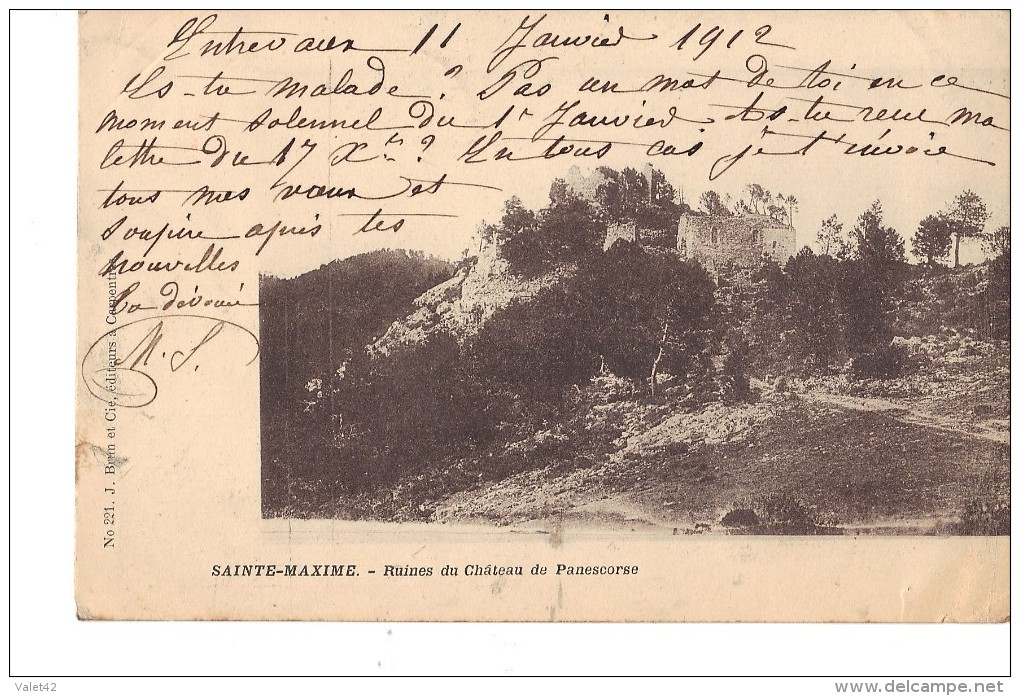 Entrevaux 11 Janvier 1912
Es-tu malade ? Pas un mot de toi en ce
moment solennel du 1r Janvier. As-tu reçu ma
lettre du 17 Xre ? En tous cas je t'envoie
tous mes vœux et
soupire après tes
nouvelles
La dévouée
M. S.
No 221. J. Brun et Cie, éditeurs à Carpentras
SAINTE-MAXIME. - Ruines du Château de Panescorse
Valet42
http://www.delcampe.net